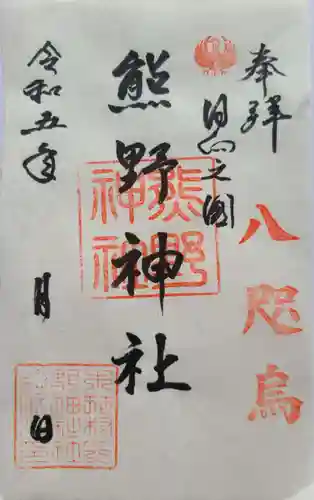 奉拝
八咫烏
日向之國
熊野神社
熊野
神社
令和五年
月
日